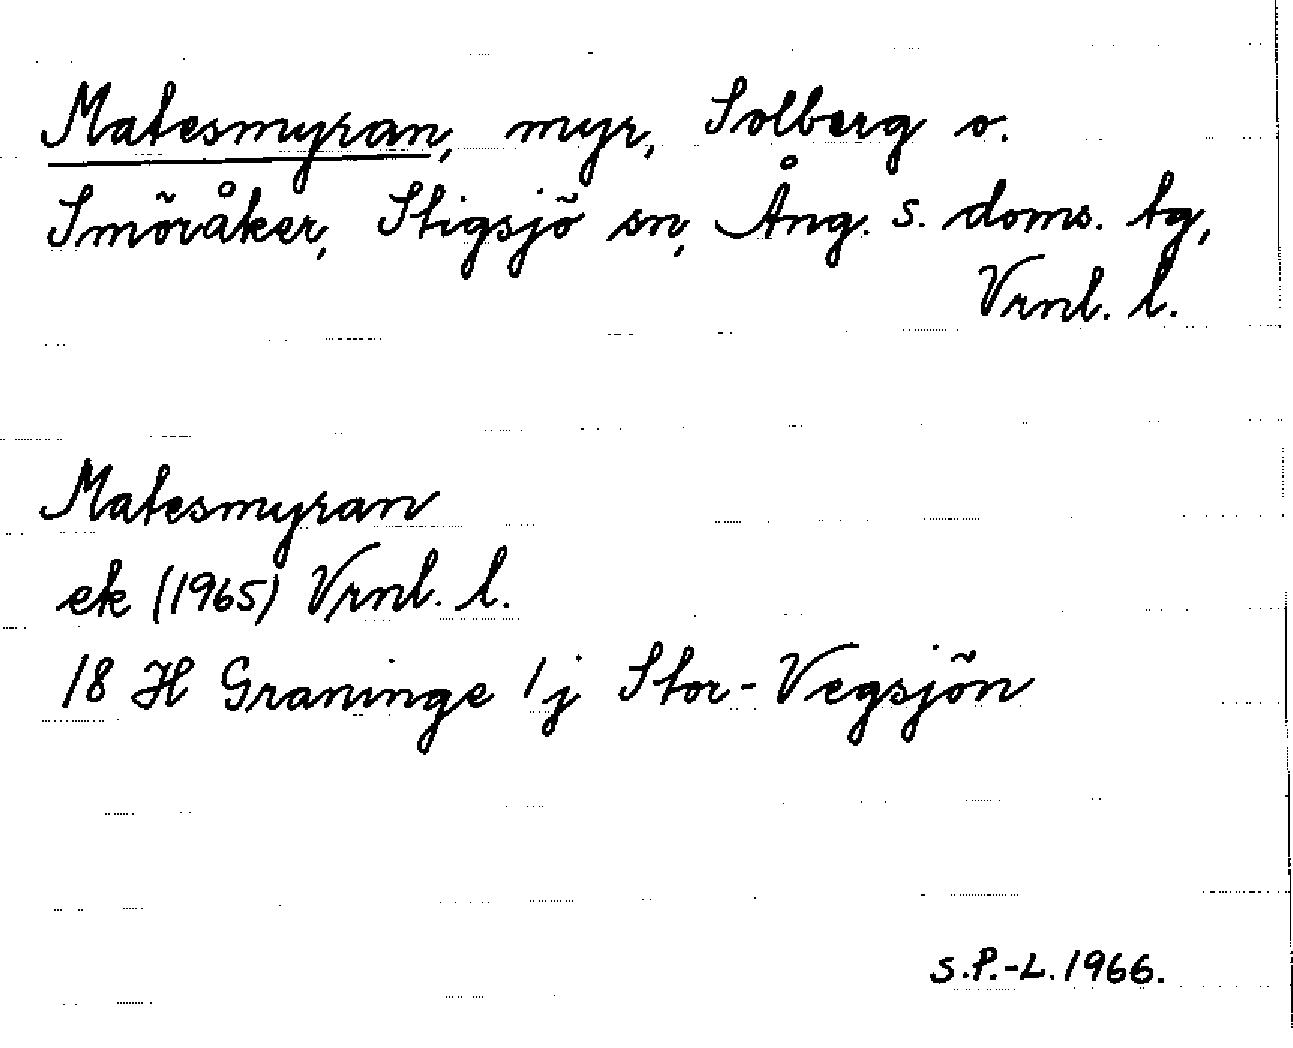 Matesmyran, myr, Solberg o.
Smöråker, Stigsjö sn, Ång. s. doms. tg,
Vrnl. l.
Matesmyran
ek (1965) Vrnl. l.
18 H Graninge 1j Stor-Vegsjön
S.P.-L. 1966.